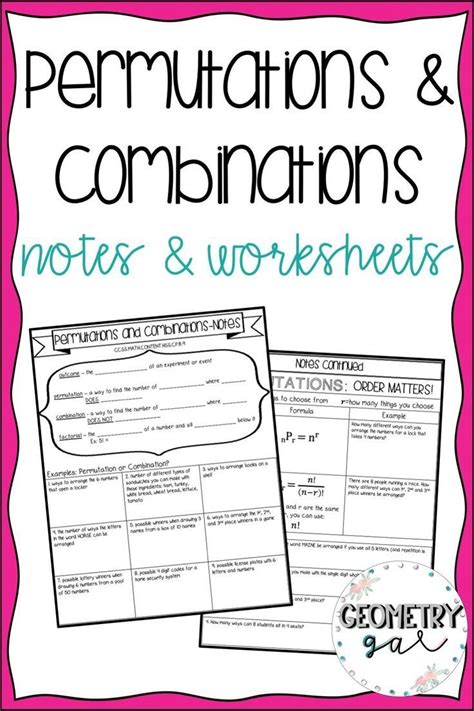 Permutations &
Combinations
notes & worksheets
Permutations and Combinations-Notes
CCSS.MATH.CONTENT.HSS.CP.B.9
outcome - the ________ of an experiment or event
permutation - a way to find the number of ________ where ________
DOES
combination - a way to find the number of ________ where ________
DOES NOT
factorial - the ________ of ________ and all ________ below it
Ex: 5! =
Examples: Permutation or Combination?
1. ways to arrange the 6 numbers
that open a locker
2. number of different types of
sandwiches you can make with
these ingredients: ham, turkey,
white bread, wheat bread, lettuce,
tomato
3. ways to arrange books on a
shelf
4. the number of ways the letters
in the word HORSE can be
arranged
5. possible winners when drawing 3
names from a box of 10 names
6. ways to arrange the 1st, 2nd,
and 3rd place winners in a game
7. possible lottery winners when
drawing 6 numbers from a pool
of 50 numbers
8. possible 4 digit codes for a
home security system
9. possible license plates with 6
letters and numbers
Notes Continued
UTATIONS: ORDER MATTERS!
s to choose from r=how many things you choose
Formula
Example
nPr = n^r
How many different ways can you
arrange the numbers for a lock that
takes 4 numbers?
= n!/(n-r)!
n and r are the same
you can use:
n!
There are 8 people running a race. How
many different 1st, 2nd, and 3rd place
winners are possible?
word MAINE be arranged if you use all 5 letters (and repetition is
you make with the single digit
and 3rd place?
4. How many ways can 8 students all in 4 seats?
GEOMETRY
gal